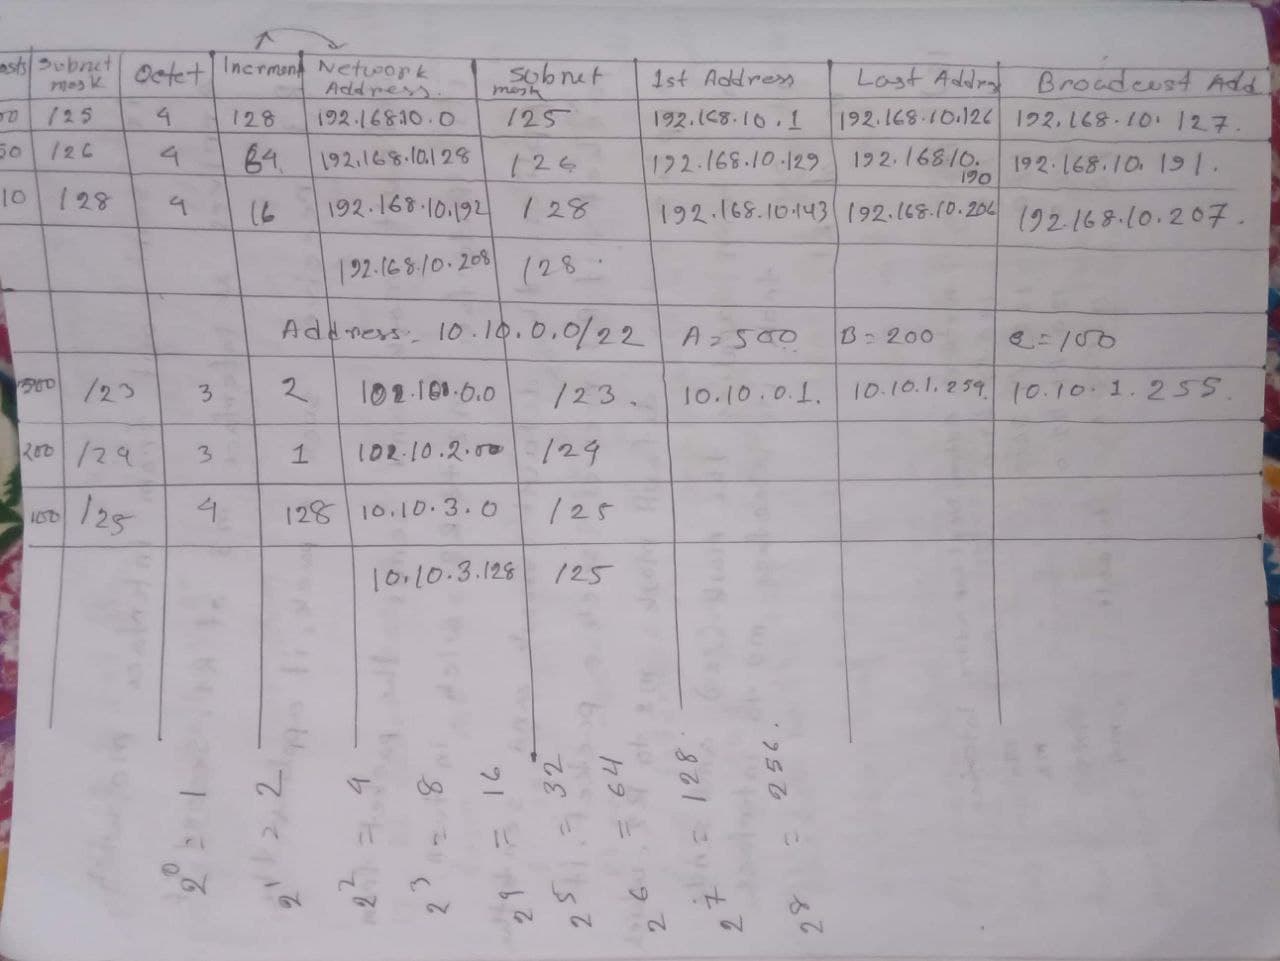 osts Subnet mask Octet Increment Network Address. Subnet mask 1st Address Last Addrs Broadcast Add
00 /25 4 128 192.168.10.0 /25 192.168.10.1 192.168.10.126 192.168.10.127.
50 /26 4 64 192.168.10.128 /26 192.168.10.129 192.168.10.190 192.168.10.191.
10 /28 4 16 192.168.10.192 /28 192.168.10.143 192.168.10.206 192.168.10.207.
192.168.10.208 /28
Address:- 10.10.0.0/22 A=500 B=200 C=100
500 /23 3 2 /23. 10.10.0.1. 10.10.1.254. 10.10.1.255.
200 /24 3 1 /24
100 /25 4 128 10.10.3.0 /25
10.10.3.128 /25
2^0 = 1
2^1 = 2
2^2 = 4
2^3 = 8
2^4 = 16
2^5 = 32
2^6 = 64
2^7 = 128.
2^8 = 256.